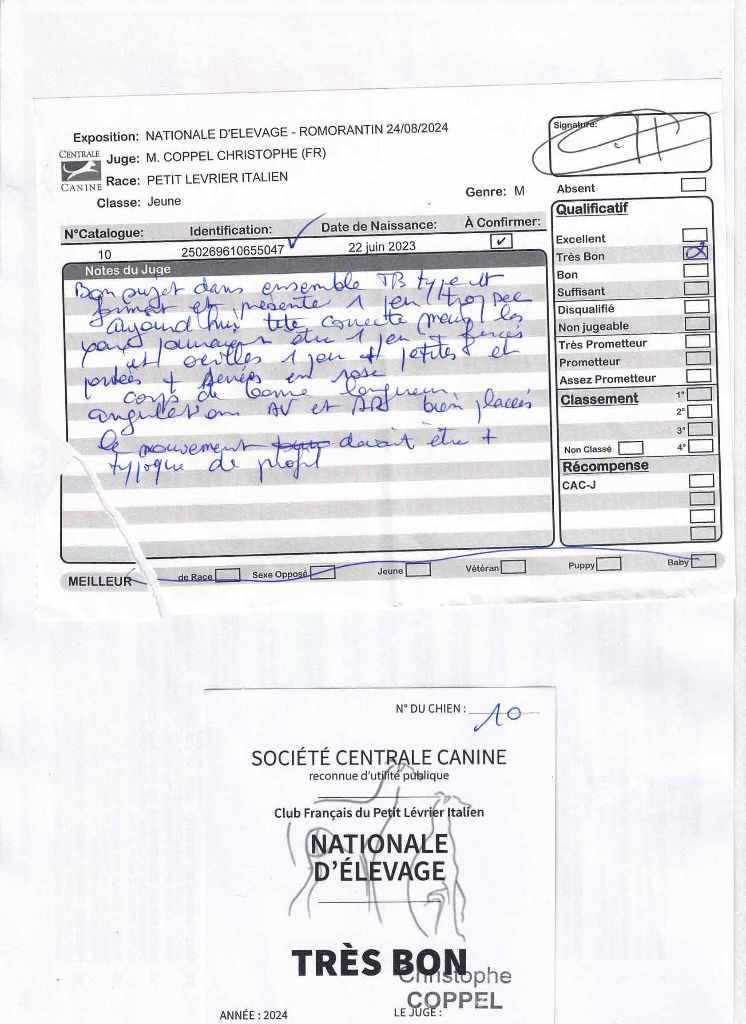 Exposition: NATIONALE D'ELEVAGE - ROMORANTIN 24/08/2024
Signature:
CENTRALE
CANINE
Juge: M. COPPEL CHRISTOPHE (FR)
Race: PETIT LEVRIER ITALIEN
Classe: Jeune
Genre: M
N°Catalogue: Identification: Date de Naissance: À Confirmer:
10 250269610655047 22 juin 2023 ✔
Notes du Juge
Bon sujet dans ensemble TB type et
format et présenté 1 peu trop sec
aujourd'hui tête correcte mais les
yeux pourraient être 1 peu + foncés
et oreilles 1 peu + petites et
portées + serrées en rose
corps de bonne longueur
angulations AV et ARR bien placés
le mouvement devrait être +
typique de profil
Absent
Qualificatif
Excellent
Très Bon
Bon
Suffisant
Disqualifié
Non jugeable
Très Prometteur
Prometteur
Assez Prometteur
Classement 1°
2°
3°
Non Classé 4°
Récompense
CAC-J
MEILLEUR de Race Sexe Opposé Jeune Vétéran Puppy Baby
N° DU CHIEN : 10
SOCIÉTÉ CENTRALE CANINE
reconnue d'utilité publique
Club Français du Petit Lévrier Italien
NATIONALE
D'ÉLEVAGE
TRÈS BON
Christophe
COPPEL
ANNÉE : 2024 LE JUGE :